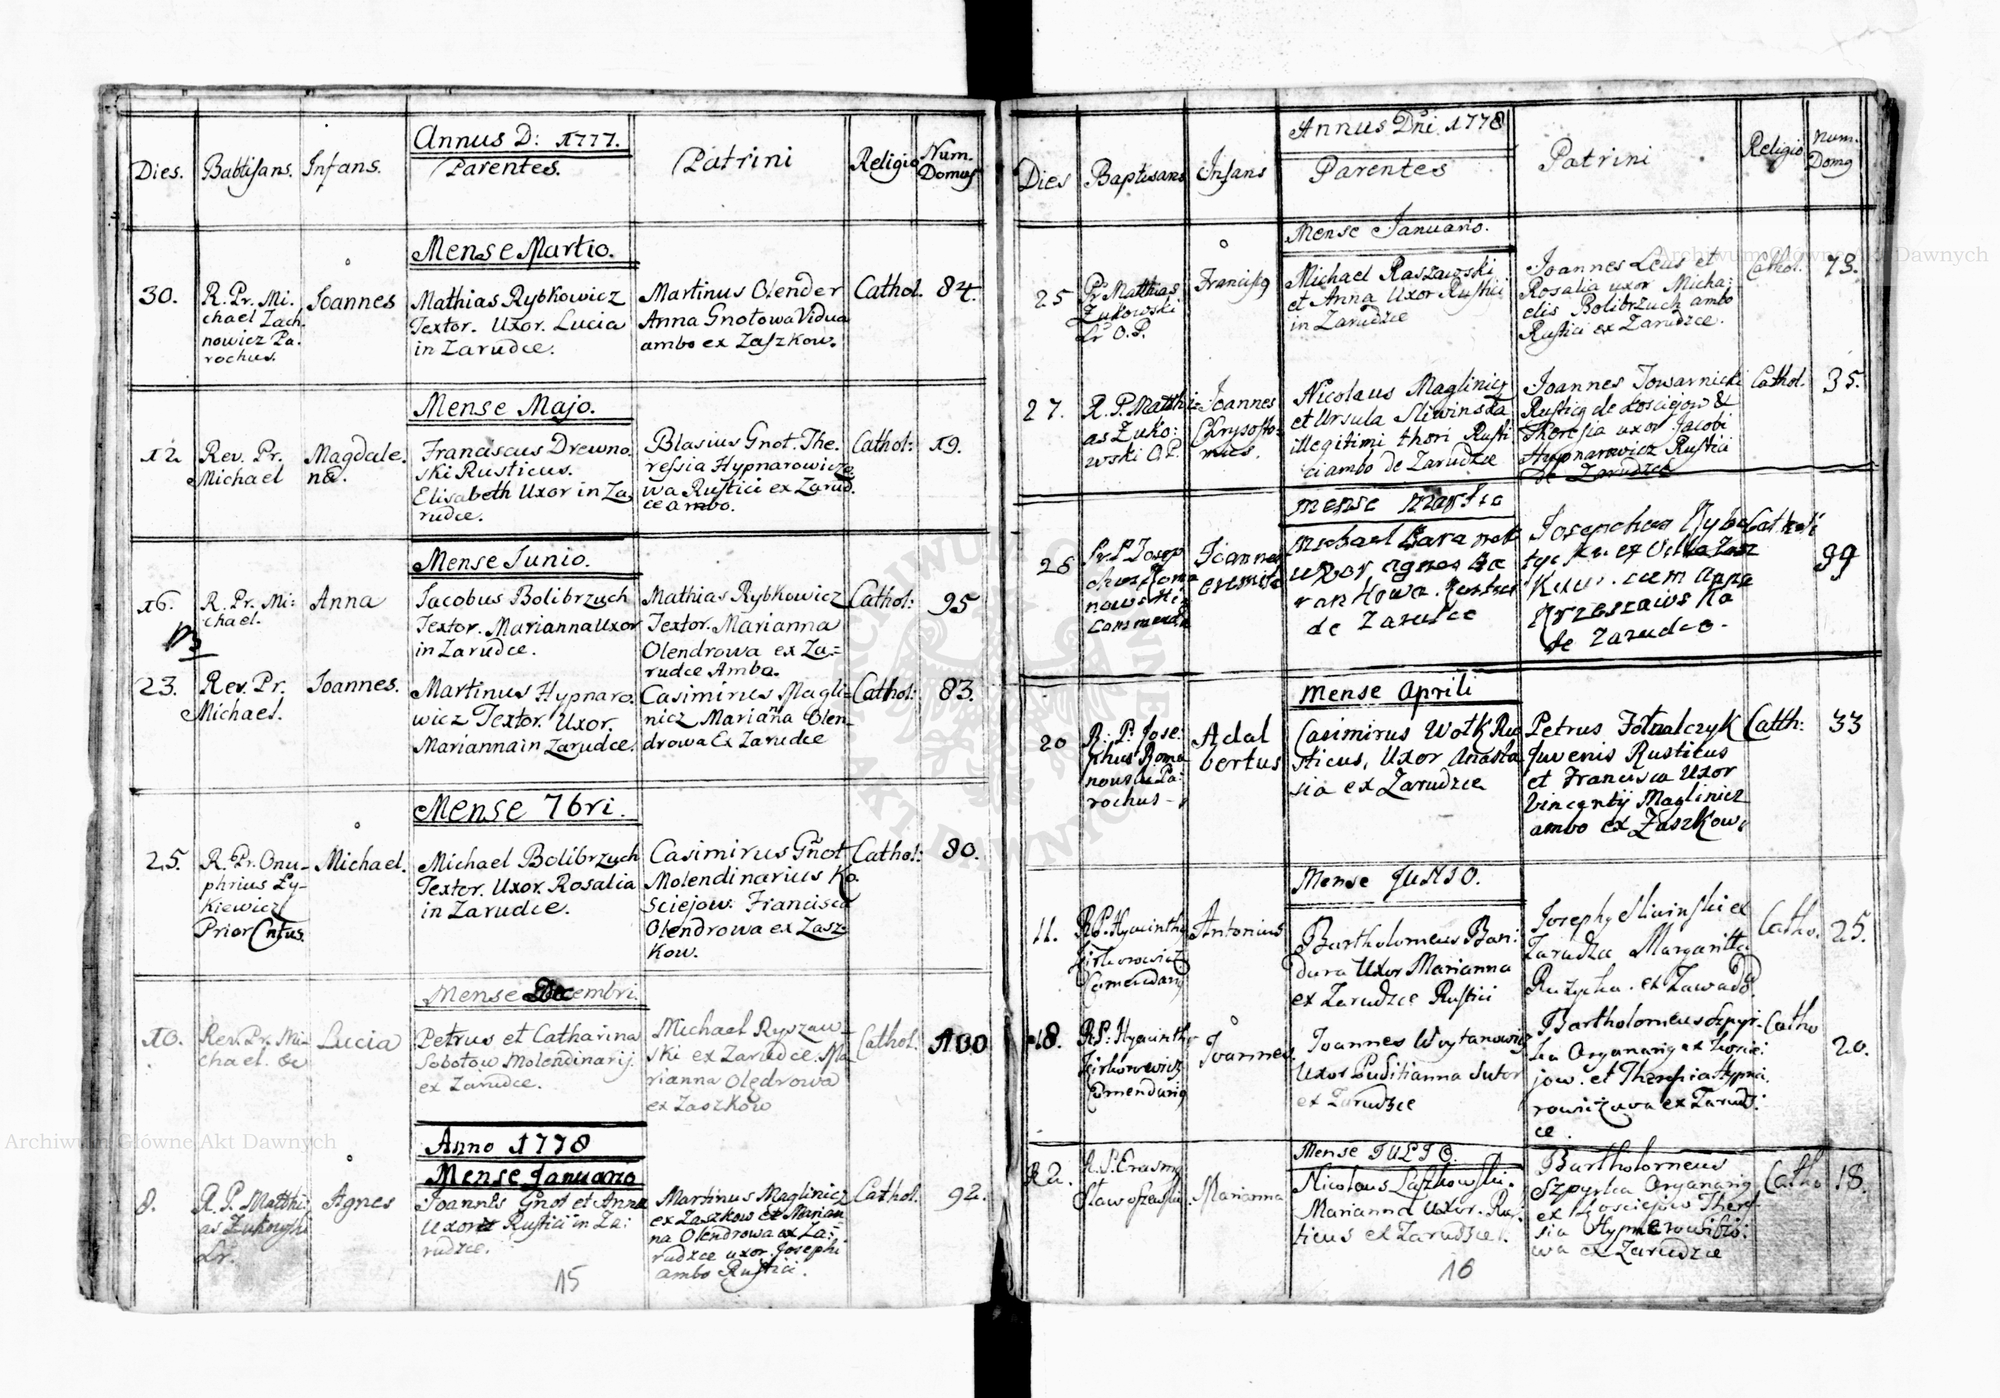 Annus D: 1777.
Dies. Babtisans. Infans. Parentes. Patrini Religio Num. Domus
Mense Martio.
30.
R. Pr. Mi-
chael Zach
nowicz Pa.
rochus.
Joannes
Mathias Rybkowicz
Textor. Uxor. Lucia
in Zarudce.
Martinus Olender
Anna Gnotowa Vidua
ambo ex Zaszkow.
Cathol. 84.
Mense Majo.
12
Rev. Pr.
Michael
Magdale.
na.
Franciscus Drewno.
ski Rusticus.
Elisabeth Uxor in Za
rudce.
Blasius Gnot. The.
ressia Hypnarowicze
wa Rustici ex Zarud.
ce ambo.
Cathol: 19.
Mense Junio.
16.
R. Pr. Mi:
chael.
Anna
Jacobus Bolibrzuch
Textor. Marianna uxor
in Zarudce.
Mathias Rybkowicz
Textor. Marianna
Olendrowa ex Za=
rudce Ambo.
Cathol: 95
23.
Rev. Pr.
Michael.
Joannes.
Martinus Hypnaro.
wicz Textor. Uxor.
Marianna in Zarudce.
Casimirus Magli=
nicz Marianna Olen-
drowa Ex Zarudce
Cathol: 83.
Mense 7bri.
25.
R. Pr. Onu-
phrius Ły-
kiewicz
Prior Cntus.
Michael.
Michael Bolibrzuch
Textor. Uxor. Rosalia
in Zarudce.
Casimirus Gnot
Molendinarius Ko.
Sciejow. Francisca
Olendrowa ex Zasz-
kow.
Cathol: 80.
Mense Decembri.
10.
Rev. Pr. Mi-
chael.
Lucia
Petrus et Catharina
Sobotow Molendinarij.
ex Zarudce.
Michael Ryszaw-
ski ex Zarudce. Ma
rianna Olędrowa
ex Zaszkow
Cathol. 100
Anno 1778
Mense Januario
8.
R. P. Matthi:
as
Lr.
Agnes
Joannes Gnot et Anna
Uxor Rustici in Za:
rudce.
Martinus Maglinicz
ex Zaszkow et Marian
na Olendrowa ex Za:
rudzce uxor Josephi
ambo Rustici.
Cathol. 92.
15
Annus Dni 1778
Dies Baptisans Infans Parentes Patrini Religio Num. Domg
Mense Januario.
25
Pr Matthias
Żukowski
Lr O.P.
Franciscg
Michael Raszawski
et Anna Uxor Rustici
in Zarudzce
Joannes Leus et
Rosalia uxor Micha:
elis Bolibrzuch ambo
Rustici ex Zarudzce.
Cathol. 73.
27.
R. P. Matthi=
as Żuko:
wski O.P.
Joannes
Chrysosto-
mus.
Nicolaus Maglinicz
et Ursula Sliwinska
illegitimi thori Rusti
ci ambo de Zarudzce
Joannes Towarnicki
Rusticg de Kosciejow &
Theresia uxor Jacobi
Hypnarowicz Rustici
de Zarudzce
Cathol. 35.
Mense Martio
26
R. P. Josep
Joannes
eremita
Michael Baranek
uxor Agnes Ba
rankowa.
de Zarudce
cum Anna
de Zarudce.
Catholi
99
Mense Aprili
20
R. P. Jose:
phus Roma
nowski Pa:
rochus-
Adal
bertus
Casimirus Wołk Ru
sticus, Uxor Anasta
sia ex Zarudzce
Petrus
Juvenis Rusticus
et Francisca Uxor
Vincentij Maglinicz
ambo ex Zaszkow.
Catth: 33
Mense JUNIO.
11.
R.P. Hyacinthg
Comendarg
Antonius
Bartholomeus Ban:
dura Uxor Marianna
ex Zarudzce Rustici
Josephg Sliwinski ex
Zarudzce Margaritta
Ruzycka. ex Zawado.
Catho. 25.
18.
R.P. Hyacinthg
Comendarig
Joannes.
Joannes Woytanowicz
Uxor Sutor
ex Zarudzce
Bartholomeus Szpyr-
ka Organarig ex Koscie:
jow. et Theresia Hypna.
rowiczowa ex Zarudz:
ce
Catho 20.
Mense JULIO.
22.
R. P. Erasmg
Marianna
Nicolaus Laszkowski.
Marianna Uxor. Rus:
ticus ex Zarudzce.
Bartholomeus
Szpyrka Organarig
ex Kosciejow There
sia Hypnarowiczo:
wa ex Zarudzce
Catho 18.
16
Archiwum Główne Akt Dawnych
Archiwum Główne Akt Dawnych
ARCHIWUM GŁÓWNE AKT DAWNYCH